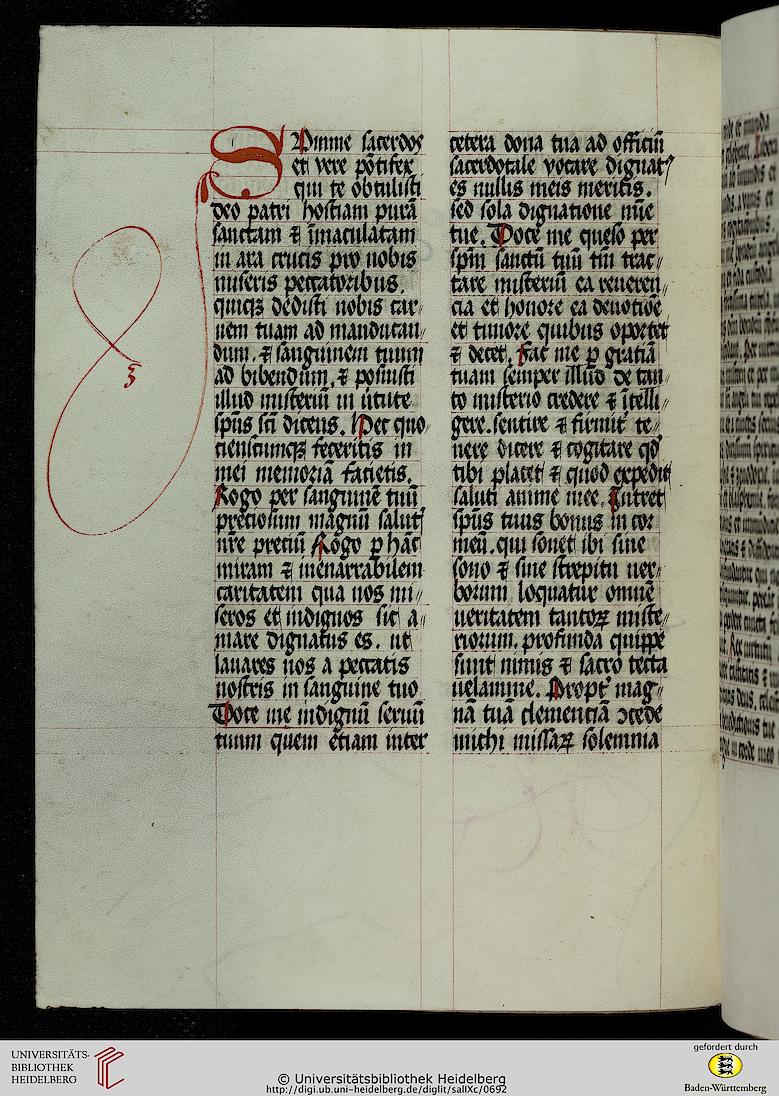 SUmme sacerdos
et vere põtifex
qui te obtulisti
deo patri hostiam purã
sanctam ⁊ ĩmaculatam
in ara crucis pro nobis
miseris peccatoribus.
quiqꝫ dedisti nobis car⸗
nem tuam ad manducan⸗
dum. ⁊ sanguinem tuum
ad bibendum. ⁊ posuisti
illud misteriũ in ũtute
spũs scĩ dicens. Hec quo⸗
cienscumqꝫ feceritis in
mei memoriã facietis.
Rogo per sanguinẽ tuũ
preciosum magnũ salut᷒
nr̃e preciũ Rogo ꝑ hãc
miram ⁊ inenarrabilem
caritatem qua nos mi⸗
seros et indignos sic a⸗
mare dignatus es. ut
lauares nos a peccatis
nostris in sanguine tuo
Doce me indignũ seruũ
tuum quem etiam inter
cetera dona tua ad officiũ
sacerdotale vocare dignat᷒
es nullis meis meritis.
sed sola dignatione mĩe
tue. Doce me queso per
spm̃ sanctũ tuũ tm̃ trac⸗
tare misteriũ ea reueren⸗
cia et honore ea deuotiõe
et timore quibus oportet
⁊ decet. Fac me ꝑ gratiã
tuam semper illud de tan⸗
to misterio credere ⁊ ĩtelli⸗
gere. sentire ⁊ firmit̃ te⸗
nere dicere ⁊ cogitare qđ
tibi placet ⁊ quod expedit
saluti anime mee. Intret
spũs tuus bonus in cor
meũ. qui sonet ibi sine
sono ⁊ sine strepitu uer⸗
borum loquatur omnẽ
ueritatem tantoꝝ miste⸗
riorum. profunda quippe
sunt nimis ⁊ sacro tecta
uelamine. Propt̃ mag⸗
nã tuã clemenciã ꝯcede
michi missaꝝ solemnia
UNIVERSITÄTS-
BIBLIOTHEK
HEIDELBERG
© Universitätsbibliothek Heidelberg
http://digi.ub.uni-heidelberg.de/diglit/salIXc/0692
gefördert durch
Baden-Württemberg